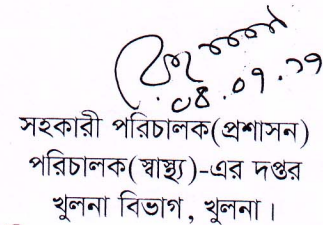 ০৪.০৭.১৭
সহকারী পরিচালক(প্রশাসন)
পরিচালক(স্বাস্থ্য)-এর দপ্তর
খুলনা বিভাগ, খুলনা।